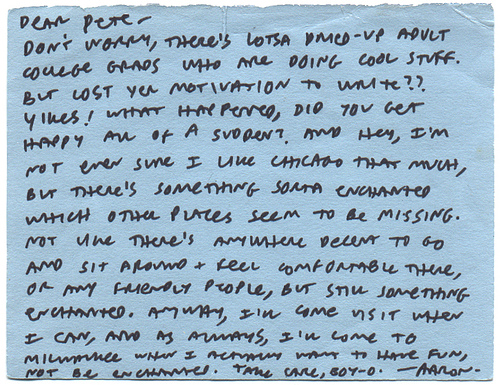 DEAR PETE-
DON'T WORRY, THERE'S LOTSA DRIED-UP ADULT
COLLEGE GRADS WHO ARE DOING COOL STUFF.
BUT LOST YER MOTIVATION TO WRITE??
YIKES! WHAT HAPPENED, DID YOU GET
HAPPY ALL OF A SUDDEN? AND HEY, I'M
NOT EVEN SURE I LIKE CHICAGO THAT MUCH,
BUT THERE'S SOMETHING SORTA ENCHANTED
WHICH OTHER PLACES SEEM TO BE MISSING.
NOT LIKE THERE'S ANYWHERE DECENT TO GO
AND SIT AROUND + FEEL COMFORTABLE THERE,
OR ANY FRIENDLY PEOPLE, BUT STILL SOMETHING
ENCHANTED. ANYWAY, I'LL COME VISIT WHEN
I CAN, AND AS ALWAYS, I'LL COME TO
MILWAUKEE WHEN I ACTUALLY WANT TO HAVE FUN,
NOT BE ENCHANTED. TAKE CARE, BOY-O. —AARON-